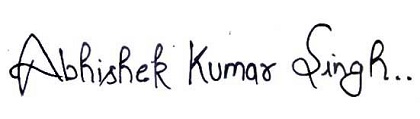 Abhishek Kumar Singh..